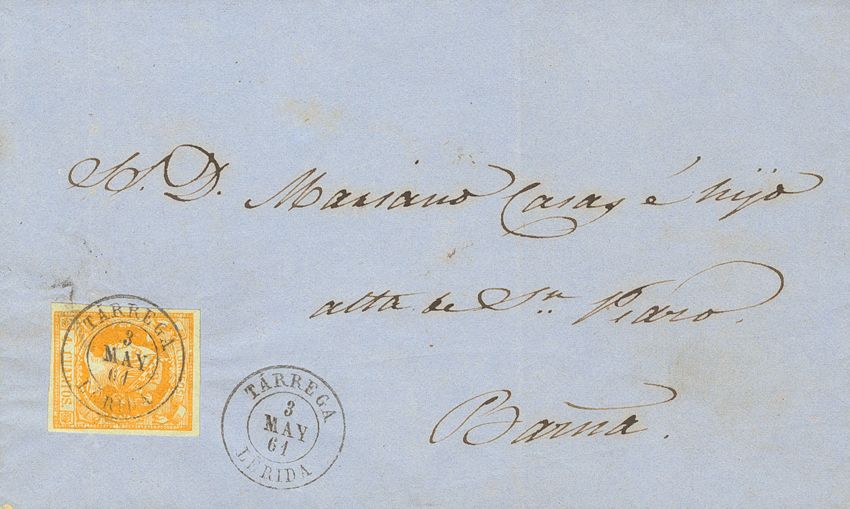 S. D. Mariano Casas é hijo
alta de Sn. Pedro.
Barna.
TÁRREGA
3
MAY
61
LERIDA
TÁRREGA
3
MAY
61
LERIDA